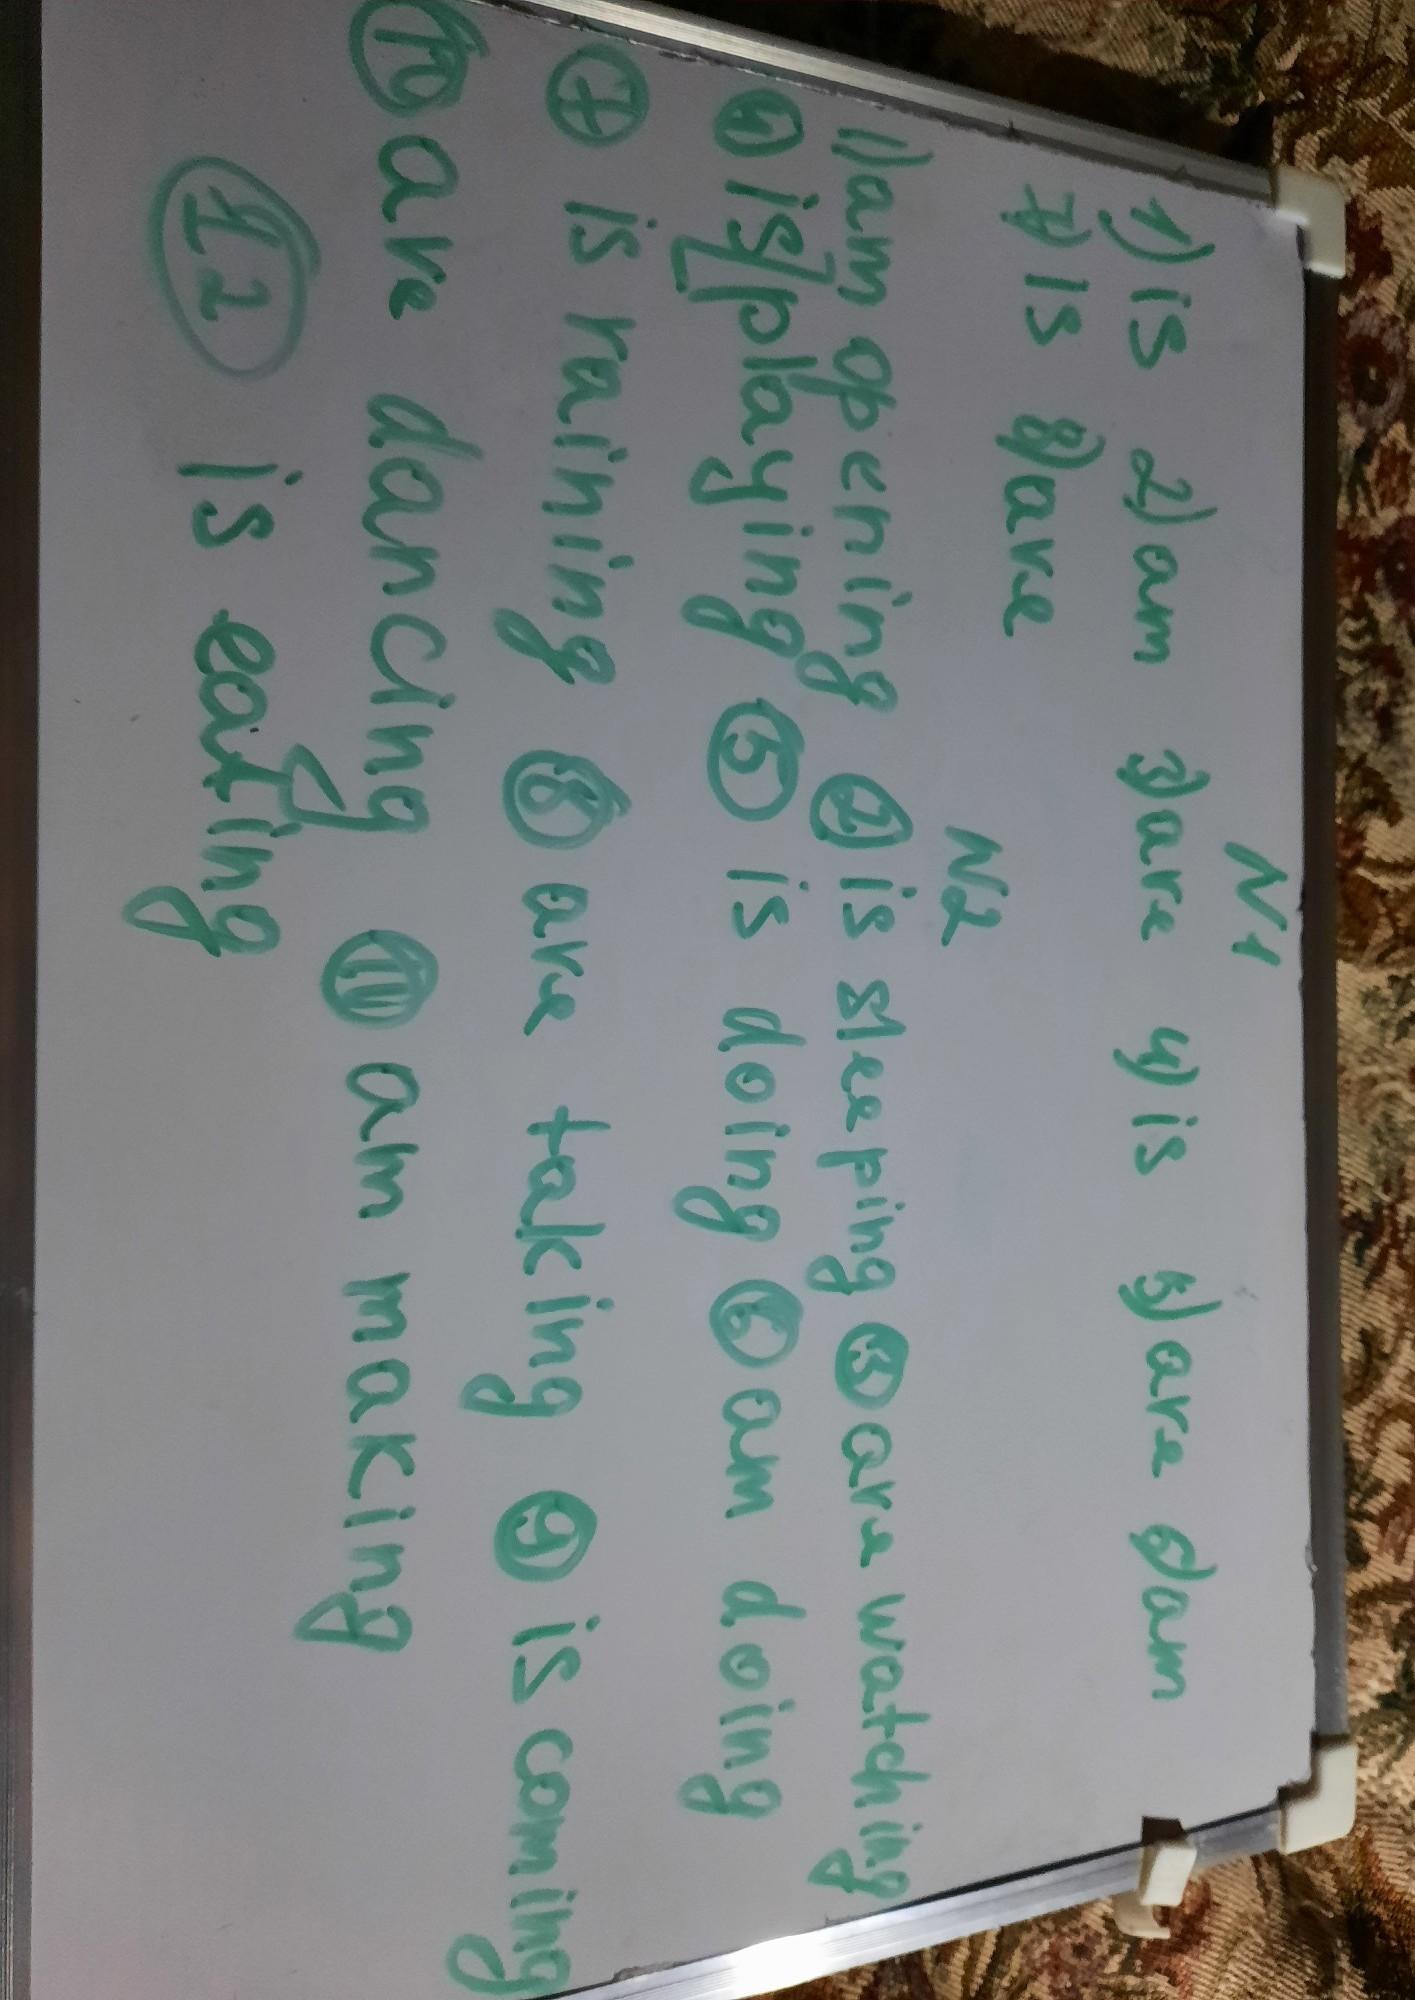 N1
1) is 2) am 3) are 4) is 5) are 6) am
7) is 8) are
N2
1) am opening 2 is sleeping 3 are watching
4 is playing 5 is doing 6 am doing
7 is raining 8 are taking 9 is coming
10 are dancing 11 am making
12 is eating